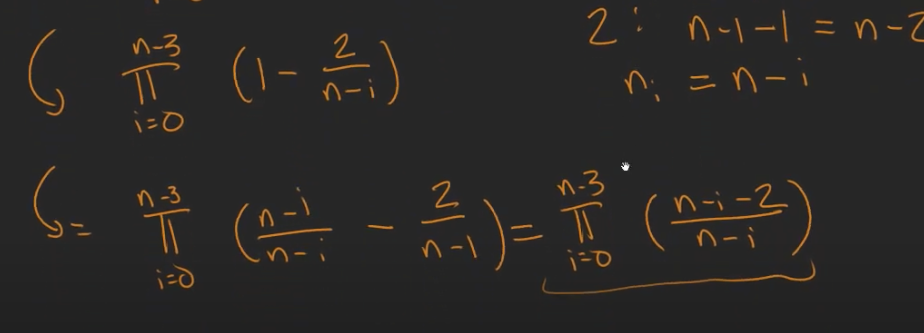 ∏_{i=0}^{n-3} (1 - 2/(n-i))
2: n-1-1 = n-2
n_i = n-i
= ∏_{i=0}^{n-3} ((n-i)/(n-i) - 2/(n-1)) = ∏_{i=0}^{n-3} ((n-i-2)/(n-i))